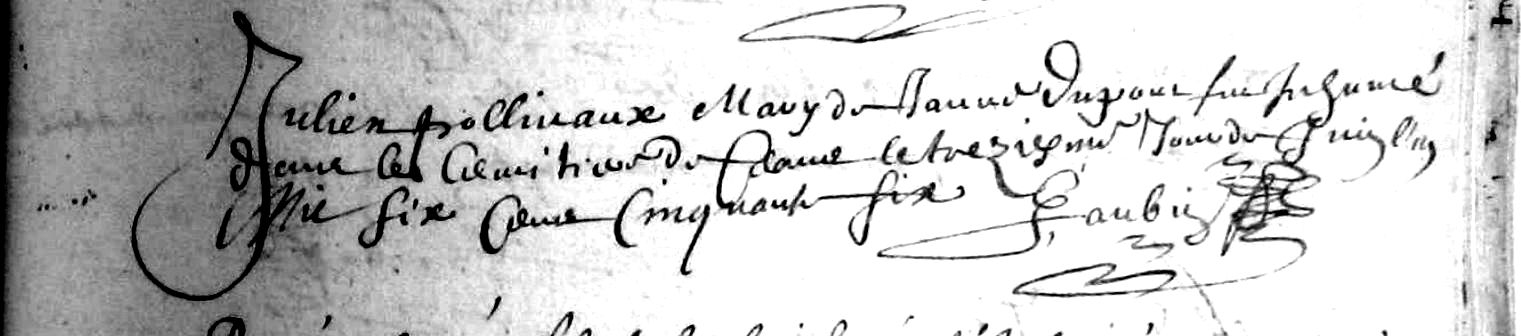 Julien Pollivaux Mary de Janne Dupont fut Inhumé
dans les Cemitiere de Ceans le trezieme Jour de Juillet
Mil six Cens Cinquante six Gaubin